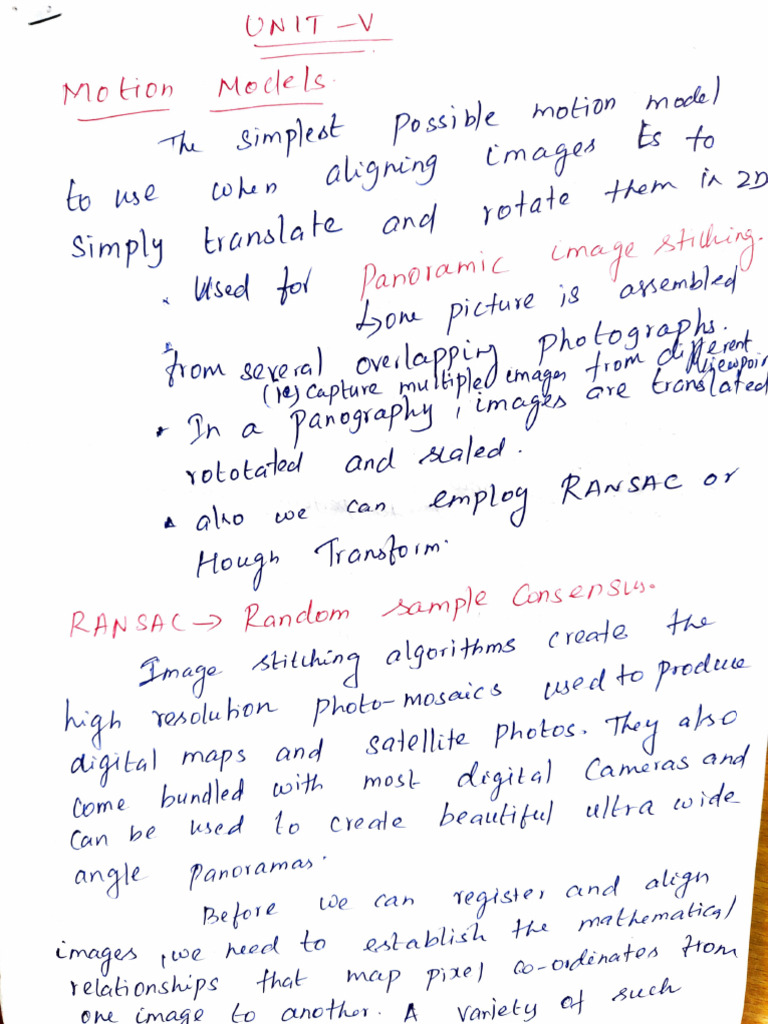 UNIT -V
Motion Models.
The simplest possible motion model
to use when aligning images is to
simply translate and rotate them in 2D
Used for Panoramic image stitching.
↳ one picture is assembled
from several overlapping photographs.
(ie) capture multiple images from different viewpoin
In a panography, images are translated
rototated and scaled.
also we can employ RANSAC or
Hough Transform.
RANSAC → Random sample Consensus.
Image stitching algorithms create the
high resolution photo-mosaics used to produce
digital maps and satellite photos. They also
come bundled with most digital cameras and
can be used to create beautiful ultra wide
angle panoramas.
Before we can register and align
images, we need to establish the mathematical
relationships that map pixel co-ordinates from
one image to another. A variety of such